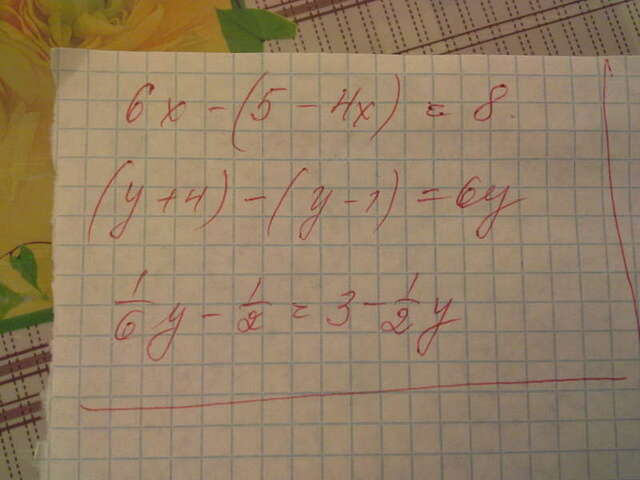 6x - (5 - 4x) = 8.
(y + 4) - (y - 1) = 6y
1/6 y - 1/2 = 3 - 1/2 y